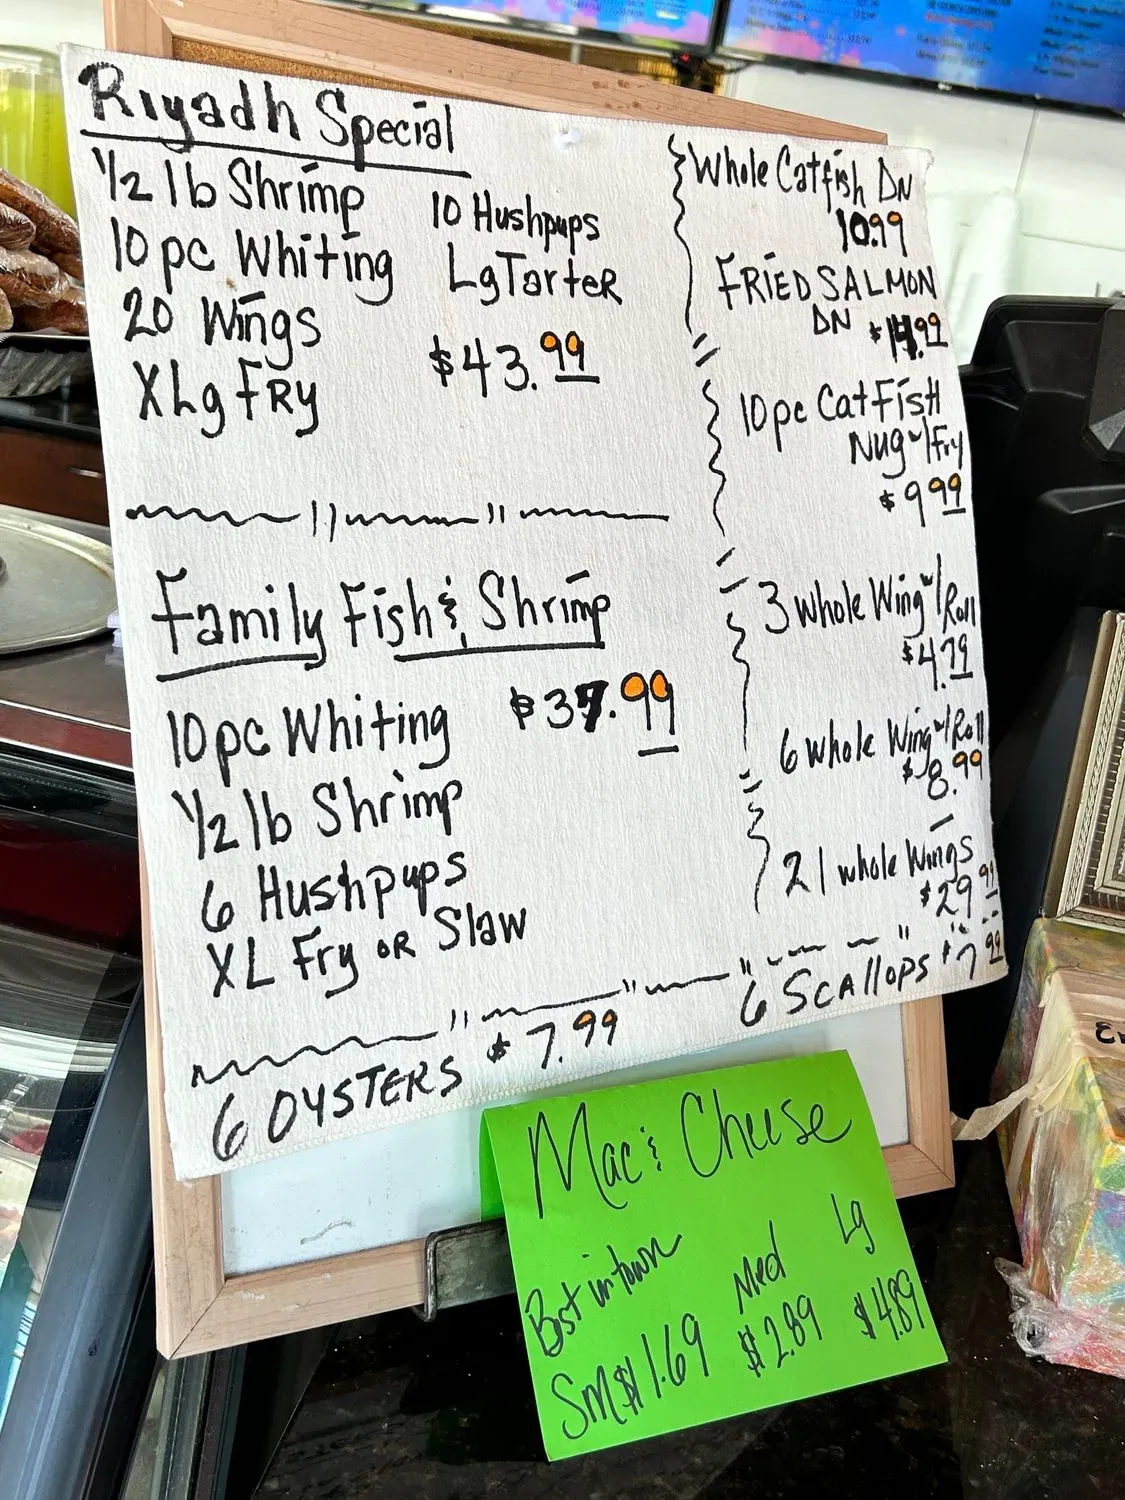 Riyadh Special
1/2 lb Shrimp
10 pc Whiting
20 Wings
XLg FRY
10 Hushpups
Lg Tarter
$43.99
Family Fish & Shrimp
10pc Whiting
$37.99
1/2 lb Shrimp
6 Hushpups
XL Fry OR Slaw
6 OYSTERS $7.99
Whole Catfish DN
10.99
FRIED SALMON
DN $14.99
10pc CatFish
Nug w/Fry
$9.99
3 whole Wing w/Roll
$4.79
6 whole Wing w/Roll
$8.99
21 whole Wings
$29.99
6 SCAllOPS $7.99
Mac & Cheese
Best in town
Sm $1.69
Med
$2.89
Lg
$4.89